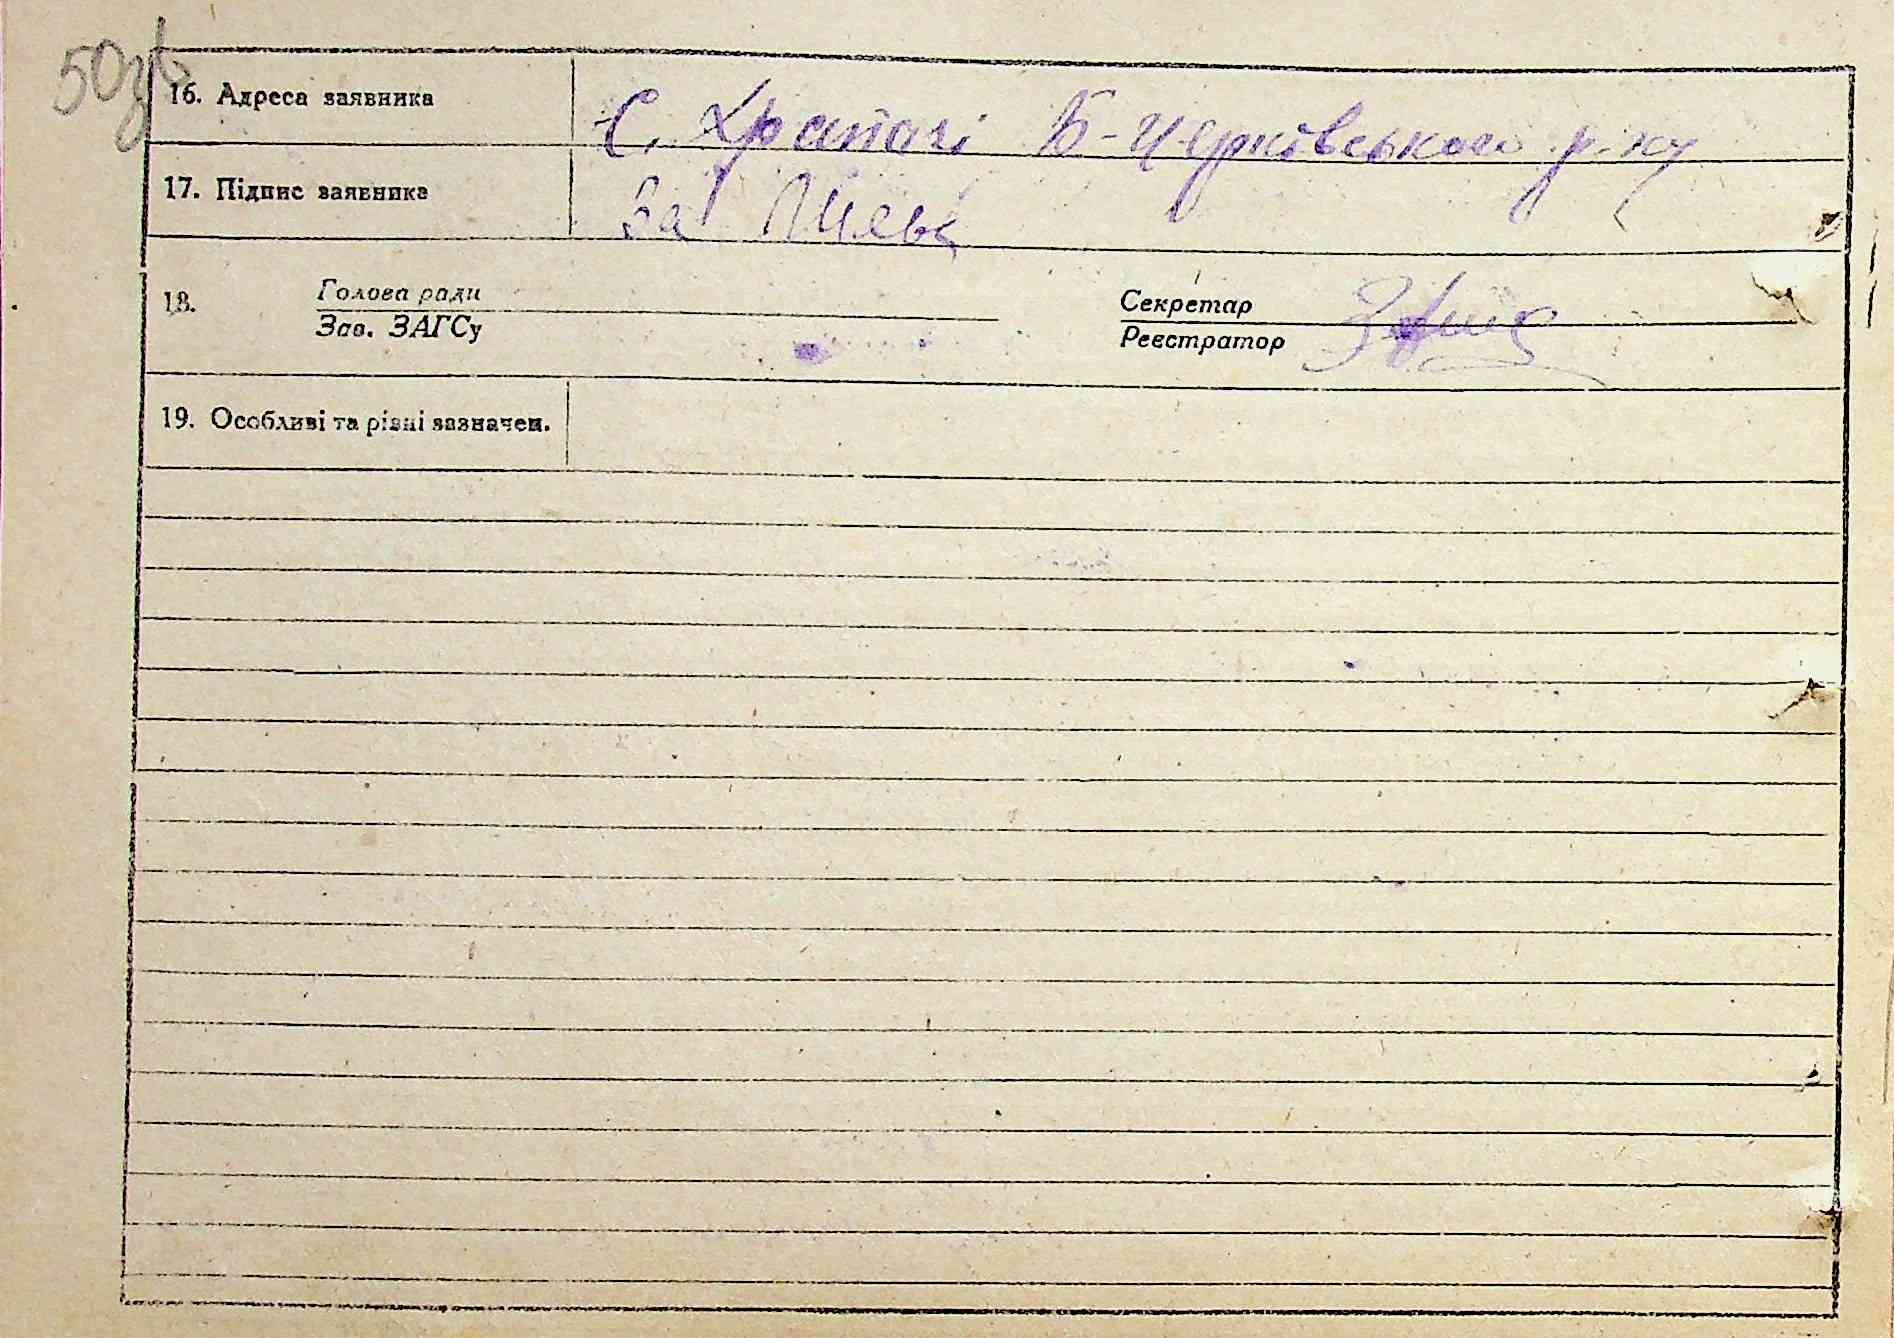 50зв
16. Адреса заявника
С. Храпачі Б-Церківського р-ну
17. Підпис заявника
За
18.
Голова ради
Зав. ЗАГСу
Секретар
Реєстратор
19. Особливі та різні зазначен.